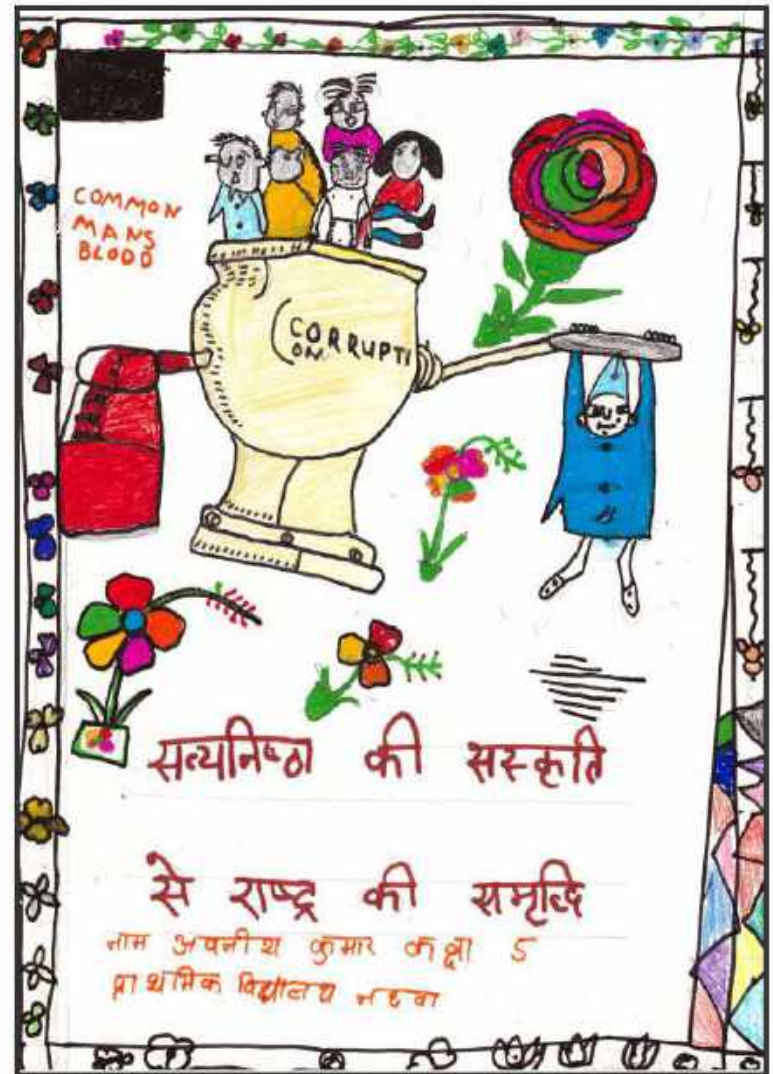 COMMON
MANS
BLOOD
CORRUPTI
ON
सत्यनिष्ठा की सस्कृति
से राष्ट्र की समृद्धि
नाम अवनीश कुमार कक्षा 5
प्राथमिक विद्यालय